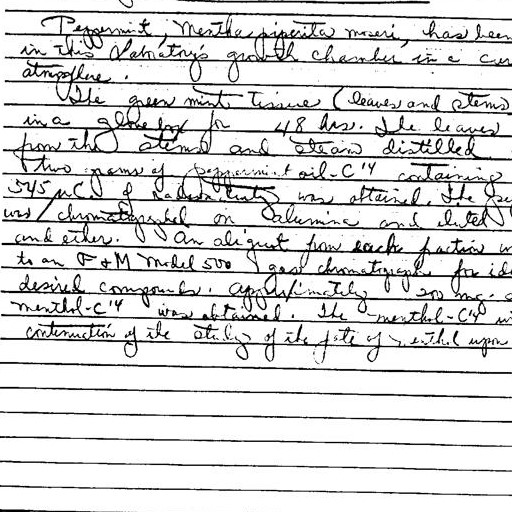 Peppermint, Mentha piperita moseri, has been
in this Laboratory's growth chamber in a
atmosphere.
The green mint tissue (leaves and stems
in a glove box for 48 hrs. The leaves
from the stems and steam distilled
two grams of peppermint oil-C14 containing
545 uC. of radioactivity was obtained. The
was chromatographed on alumina and eluted
and ether. An aliquot from each fraction
to an F & M Model 500 gas chromatograph for
desired compounds. Approximately 200 mg.
menthol-C14 was obtained. The menthol-C14
continuation of the study of the fate of menthol upon